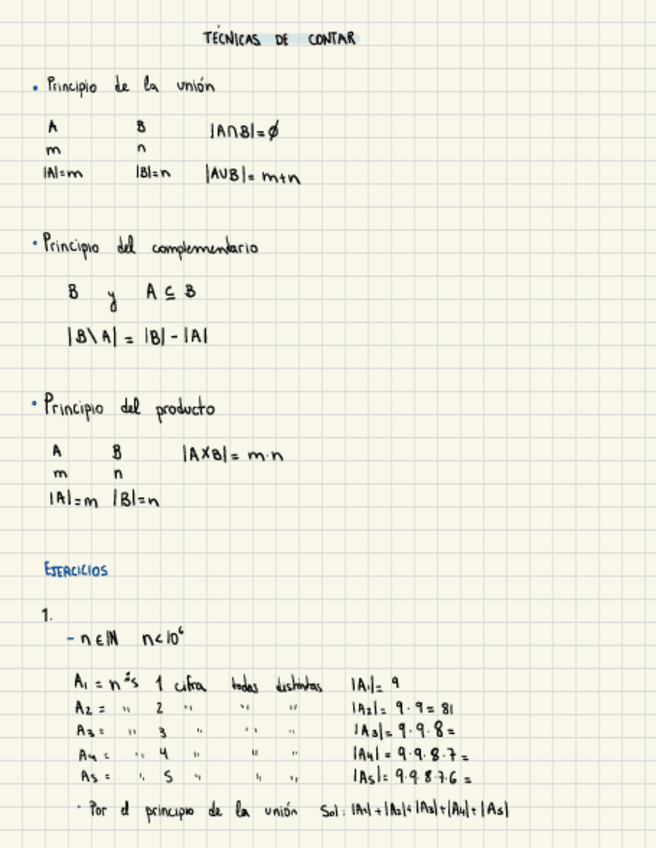 TÉCNICAS DE CONTAR
• Principio de la unión
A B |A∩B|=∅
m n
|A|=m |B|=n |A∪B|= m+n
• Principio del complementario
B y A ⊆ B
|B\A| = |B| - |A|
• Principio del producto
A B |A×B|= m·n
m n
|A|=m |B|=n
EJERCICIOS
1.
- n∈ℕ n<10⁶
A₁ = nºs 1 cifra todas distintas |A₁|= 9
A₂ = " 2 " " " |A₂|= 9·9 = 81
A₃ = " 3 " " " |A₃|= 9·9·8 =
A₄ = " 4 " " " |A₄|= 9·9·8·7 =
A₅ = " 5 " " " |A₅|= 9·9·8·7·6 =
· Por el principio de la unión Sol: |A₁|+|A₂|+|A₃|+|A₄|+|A₅|